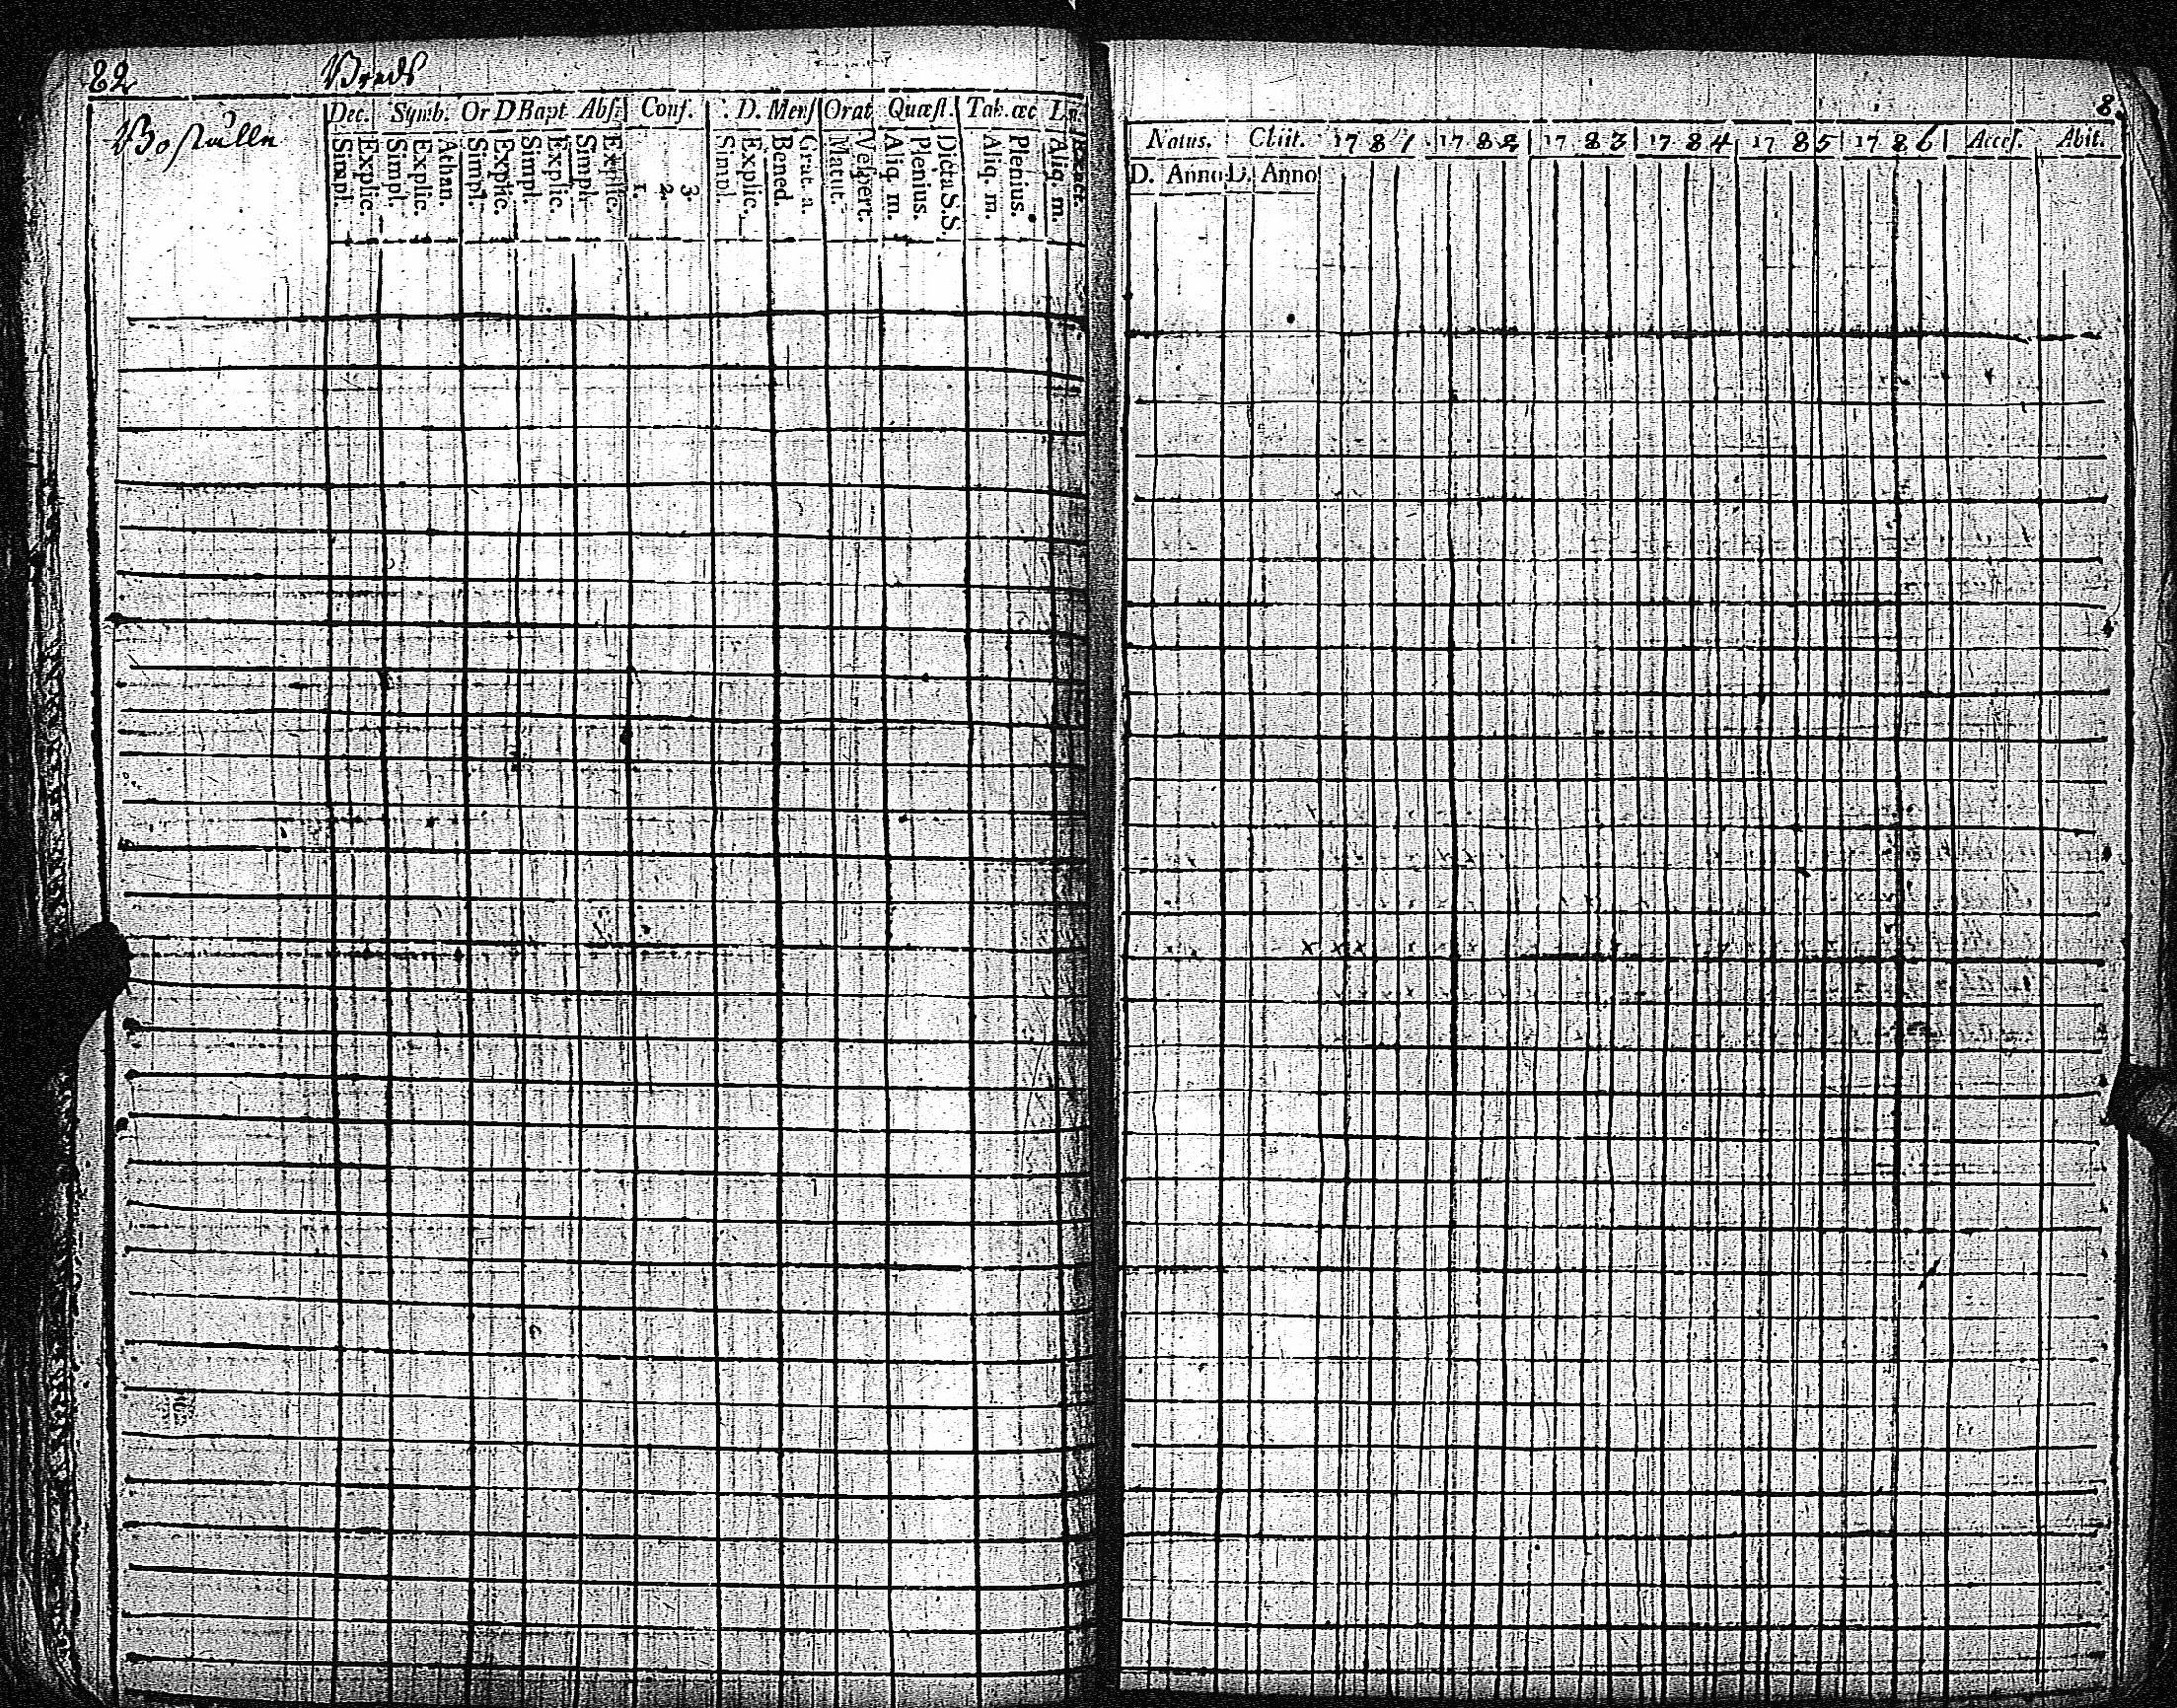 82 Breds
Boställe
Dec. Symb. Or D Bapt Abs: Conf. D. Mens Orat Quæst. Tab. œc Lu.
Simpl. Explic. Simpl. Explic. Athan. Simpl. Explic. Simpl. Explic. Simpl. Explic. 1. 2. 3. Simpl. Explic. Bened. Grat. a. Matut. Vespert. Aliq. m. Plenius. Dicta S.S. Aliq. m. Plenius. Aliq. m. Exact.
8
Natus. Obiit. 1781 1782 1783 1784 1785 1786 Acces. Abit.
D. Anno D. Anno